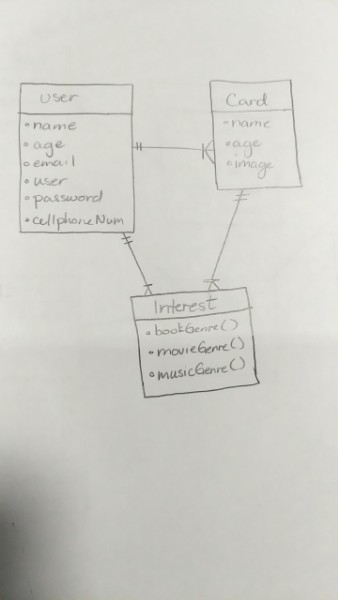 User
name
age
email
user
password
cellphoneNum
Card
name
age
image
Interest
bookGenre()
movieGenre()
musicGenre()